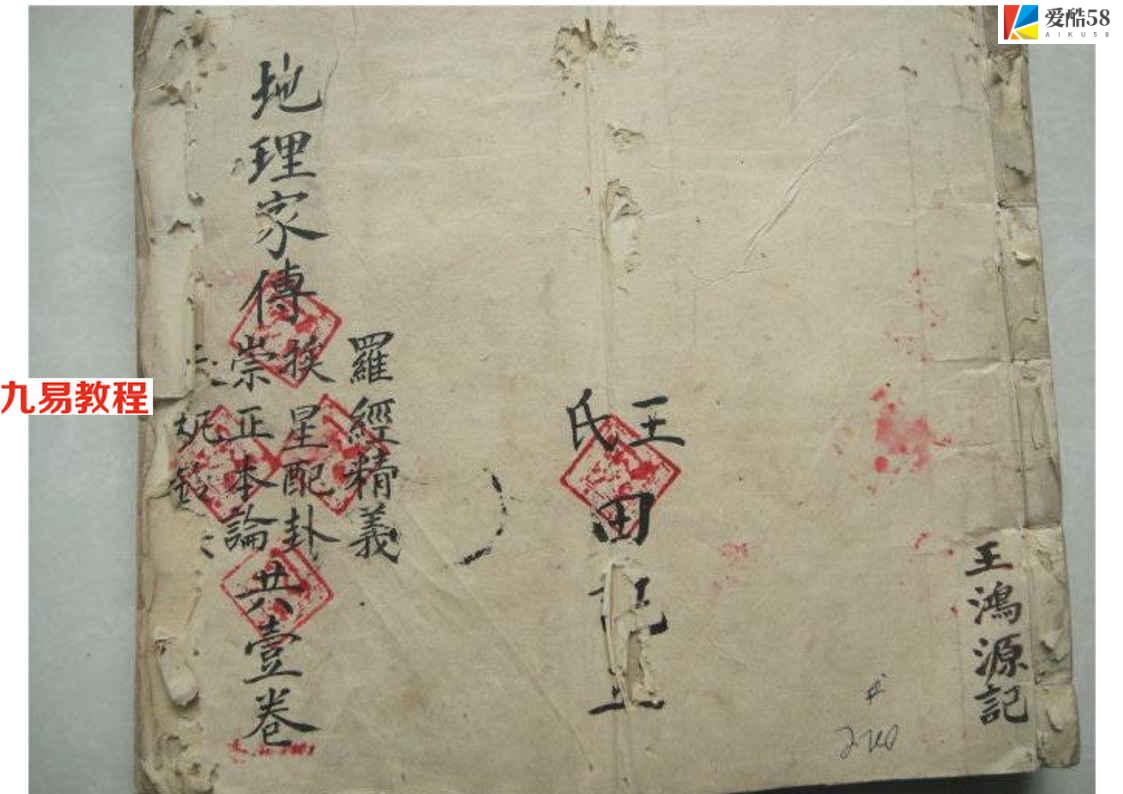 爱酷58
AIKU58
九易教程
地理家傳
羅經精義
挨星配卦
崇正本論
共壹卷
王氏
田記
王鴻源記